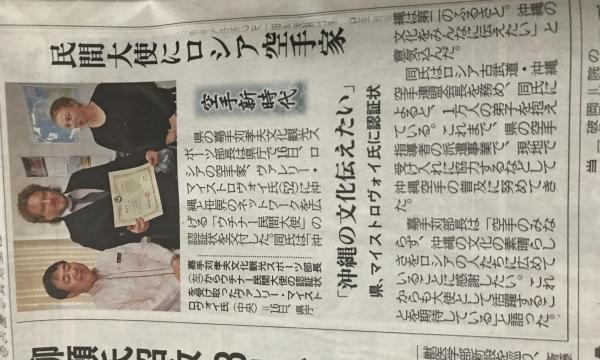 民間大使にロシア空手家
空手新時代
「沖縄の文化伝えたい」
県、マイストロヴォイ氏に認証状
県の嘉手苅孝夫文化観光ス
ポーツ部長は県庁で16日、ロ
シアの空手家、ヴァレリー・
マイストロヴォイ氏(52)に沖
縄と世界のネットワークを広
げる「ウチナー民間大使」の
認証状を交付した。同氏は「沖
縄は第二のふるさと。沖縄の
文化をみんなに伝えたい」と
意気込んだ。
同氏はロシア古武道・沖縄
空手連盟会長を務め、同氏に
よると、1万人の弟子を抱え
ている。これまで、県の空手
指導者の派遣事業で、現地で
受け入れに協力するなどして
沖縄空手の普及に努めてき
た。
嘉手苅部長は「空手のみな
らず、沖縄の文化の素晴らし
さをロシアの人たちに広めて
いることに感謝したい。これ
からも大使として活躍するこ
とを期待している」と語った。
嘉手苅孝夫文化観光スポーツ部長
(左)からウチナー民間大使の認証状
を受け取ったヴァレリー・マイスト
ロヴォイ氏(中央)=16日、県庁